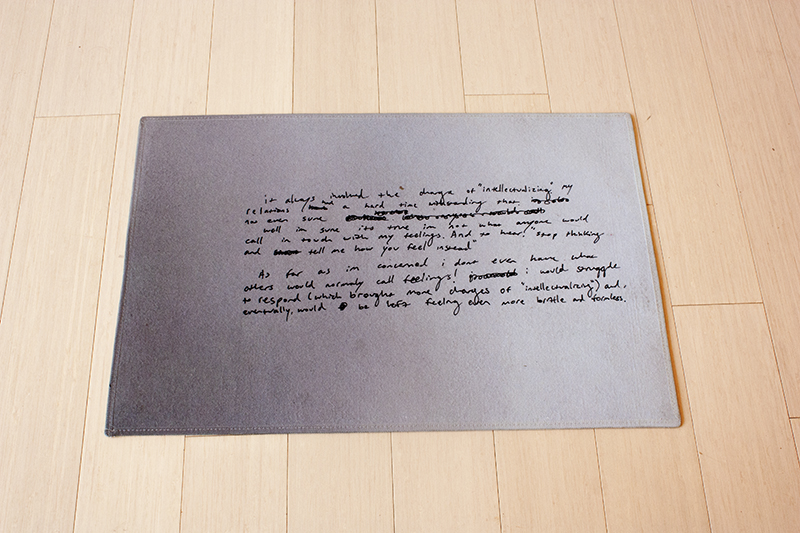 it always involved the charge of "intellectualizing" my
relations / a hard time withstanding that
not even sure
well im sure its true im not what anyone would
call in touch with my feelings. And to hear! "stop thinking
and tell me how you feel instead"
As far as im concerned i dont even have what
others would normally call feelings! i would struggle
to respond (which brought more charges of "intellectualizing") and,
eventually, would be left feeling even more brittle and formless.